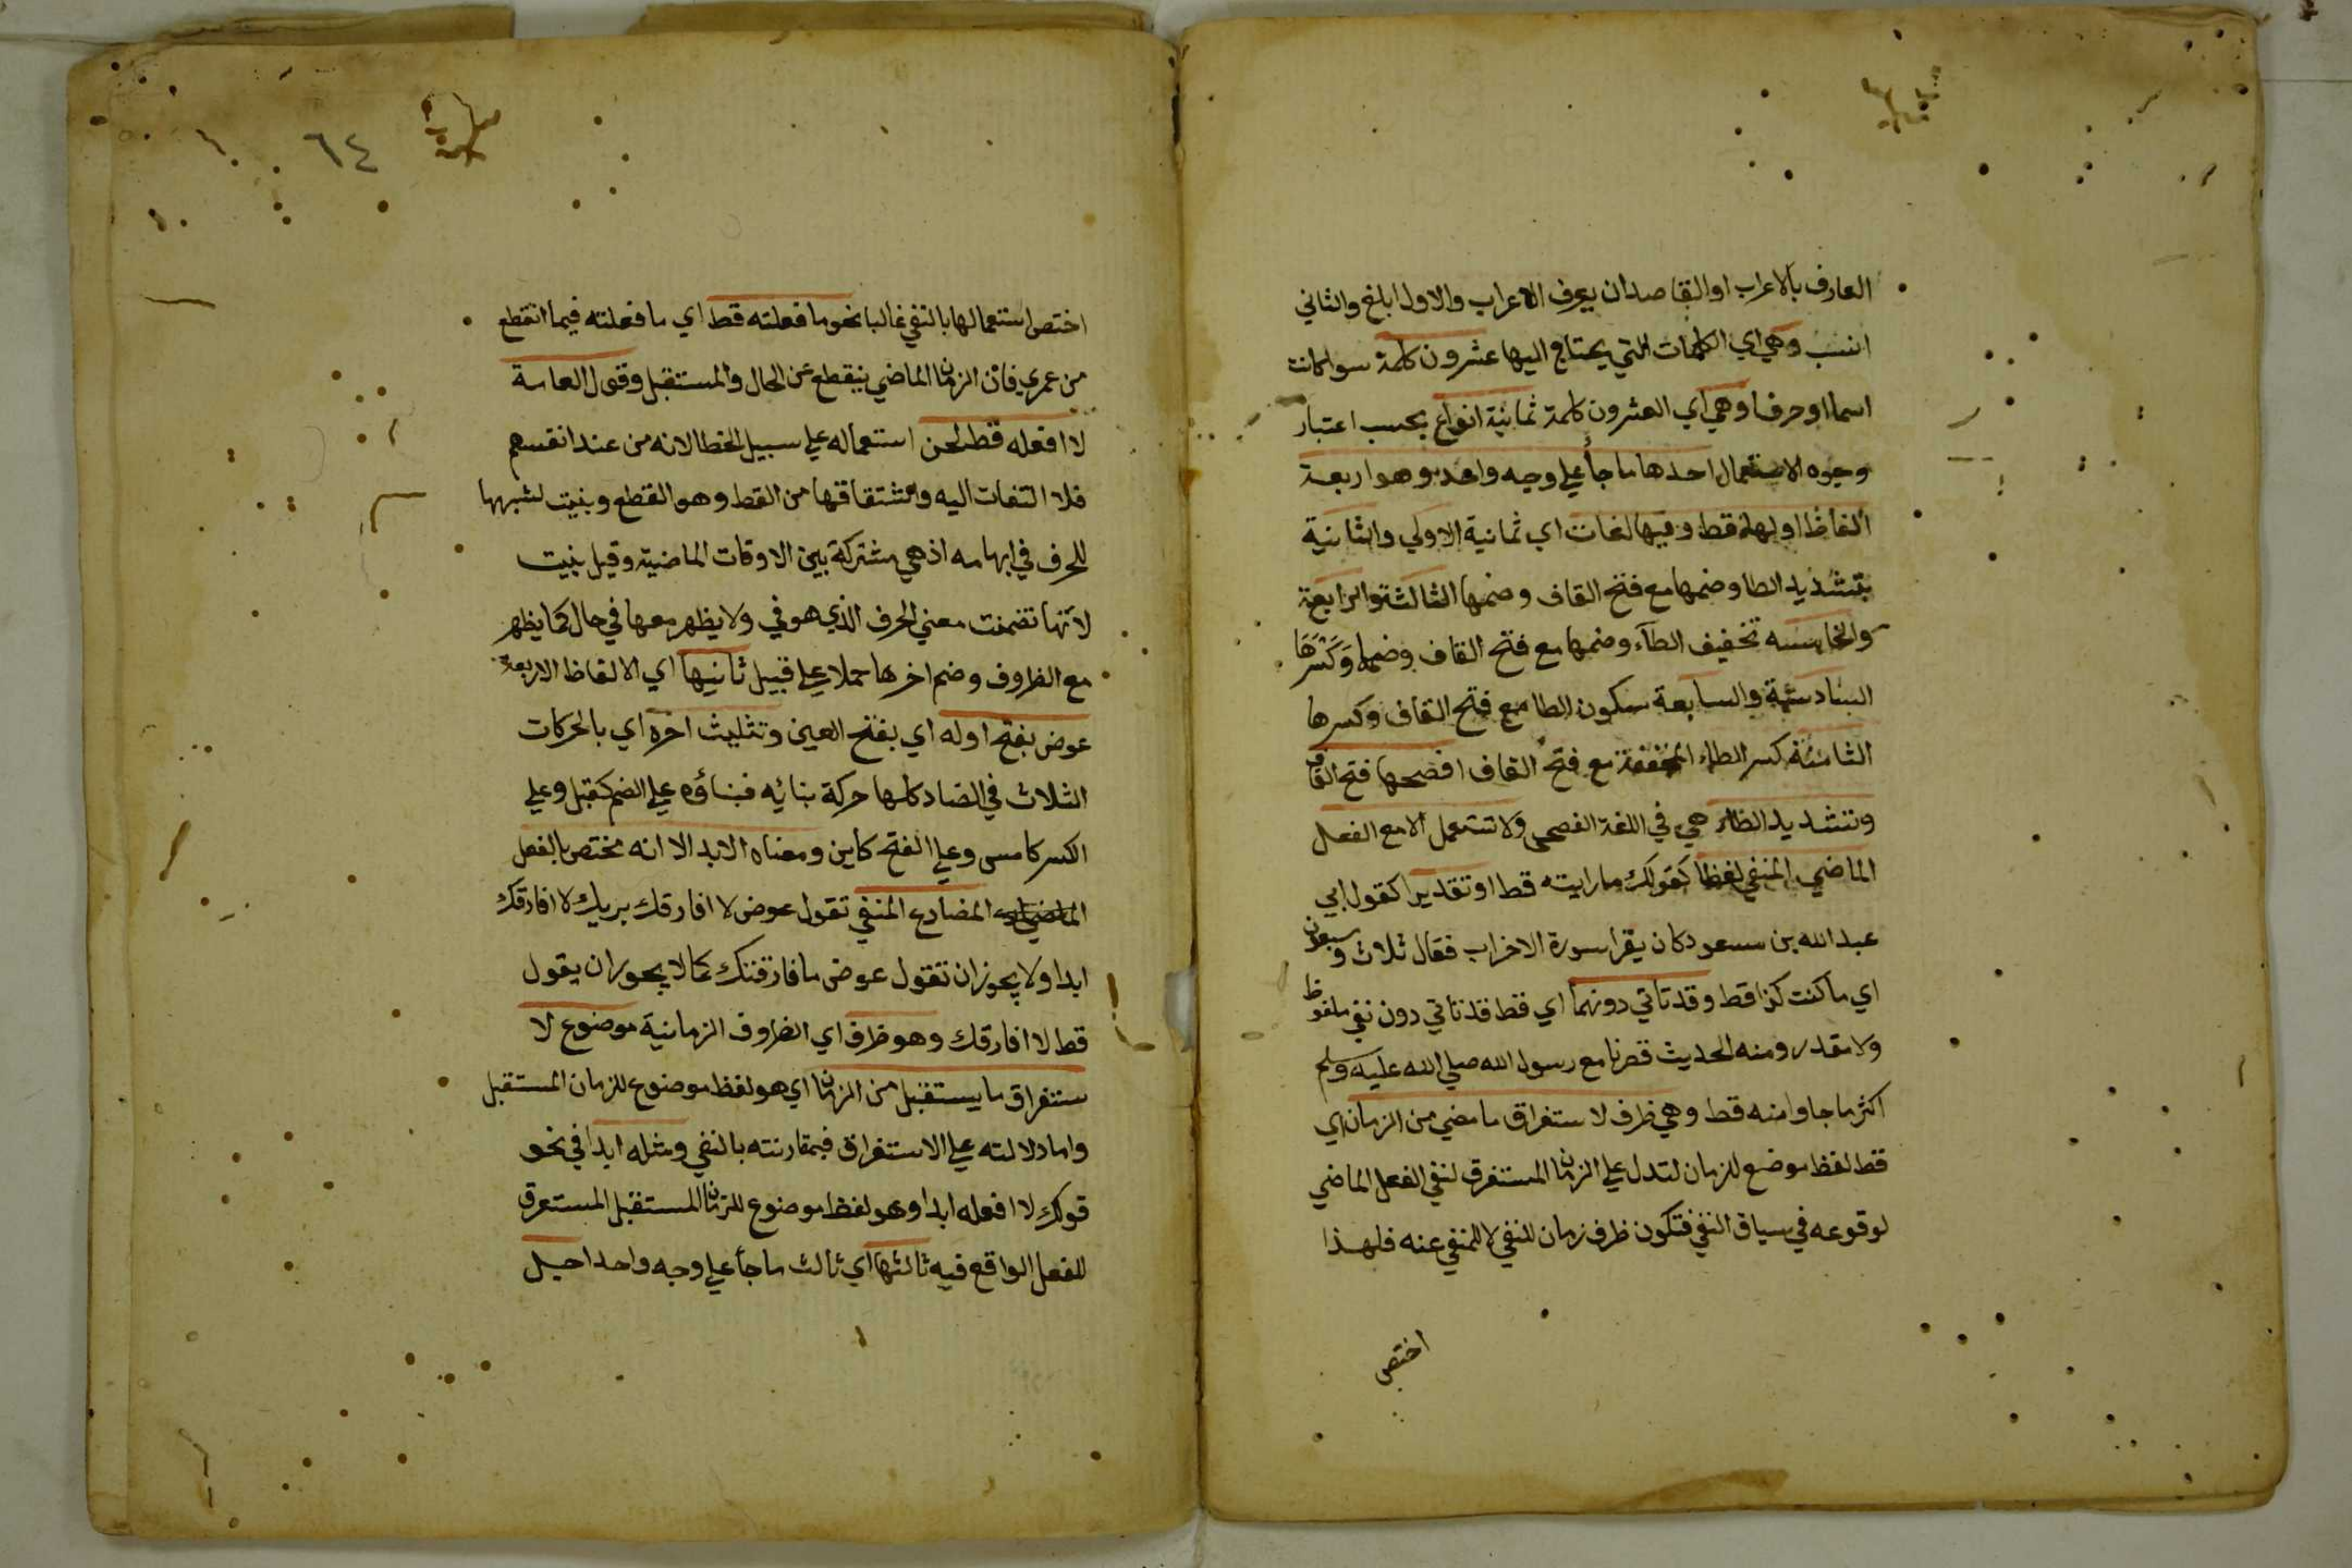 العارف بالاعراب او القاصد ان يعرف الاعراب والاول ابلغ والثاني
انسب وهي اي الكلمات التي يحتاج اليها عشرون كلمة سوا كانت
اسما او حرفا وهي اي العشرون كلمة ثمانية انواع بحسب اعتبار
وجوه الاستعمال احدها ما جأ علي وجه واحد وهو اربعة
ألفاظ اولها قط وفيها لغات اي ثمانية الاولي والثانية
بتشديد الطا وضمها مع فتح القاف وضمها الثالثة والرابعة
والخامسه تخفيف الطآء وضمها مع فتح القاف وضمها وكسرها
السادسة والسابعة سكون الطا مع فتح القاف وكسرها
الثامنة كسر الطاء المخففة مع فتح القاف افصحها فتح القاف
وتشديد الطاء هي في اللغة الفصحى ولا تستعمل الا مع الفعل
الماضي المنفي لفظا كقولك ما رايته قط او تقديرا كقول ابي
عبد الله بن مسعود كان يقرا سورة الاحزاب فقال ثلاث وسبعون
اي ما كنت كذا قط وقد تاتي دونهما اي قط قد تاتي دون نفي ملفوظ
ولا مقدر ومنه الحديث قصرنا مع رسول الله صلي الله عليه وسلم
اكثر ما جاوامنه قط وهي ظرف لاستغراق ما مضي من الزمان اي
قط لفظ موضع للزمان لتدل علي الزمان المستغرق لنفي الفعل الماضي
لوقوعه في سياق النفي فتكون ظرف زمان للنفي لا للمنفي عنه فلهذا
اختص
٦٤
اختص استعمالها بالنفي غالبا نحو ما فعلته قط اي ما فعلته فيما انقطع
من عمري فان الزمان الماضي ينقطع عن الحال والمستقبل وقول العامة
لا افعله قط لحن استعماله علي سبيل الخطا لانه من عند انفسهم
فلا التفات اليه واشتقاقها من القط وهو القطع وبنيت لشبهها
للحرف في ابهامه اذ هي مشتركة بين الاوقات الماضية وقيل بنيت
لانها تضمنت معني الحرف الذي هو في ولا يظهر معها في حال كما يظهر
مع الظروف وضم اخرها حملا علي قبيل ثانيها اي الالفاظ الاربعة
عوض بفتح اوله اي بفتح العين وتثليث اخره اي بالحركات
الثلاث في الضاد كلها حركة بنائه فبناؤه علي الضم كقبل وعلي
الكسر كامس وعلي الفتح كاين ومعناه الابد الا انه مختص بالفعل
المضارع المنفي تقول عوض لا افارقك يريك لا افارقك
ابدا ولا يجوز ان تقول عوض ما فارقتك كما لا يجوز ان يقول
قط لا افارقك وهو ظرف اي الظروف الزمانية موضوع لا
ستغراق ما يستقبل من الزمان اي هو لفظ موضوع للزمان المستقبل
واما دلالته علي الاستغراق فبمقارنته بالنفي ومثله ابدا في نحو
قولك لا افعله ابدا وهو لفظ موضوع للزمان المستقبل المستغرق
للفعل الواقع فيه ثالثها اي ثالث ما جأ علي وجه واحد اجل